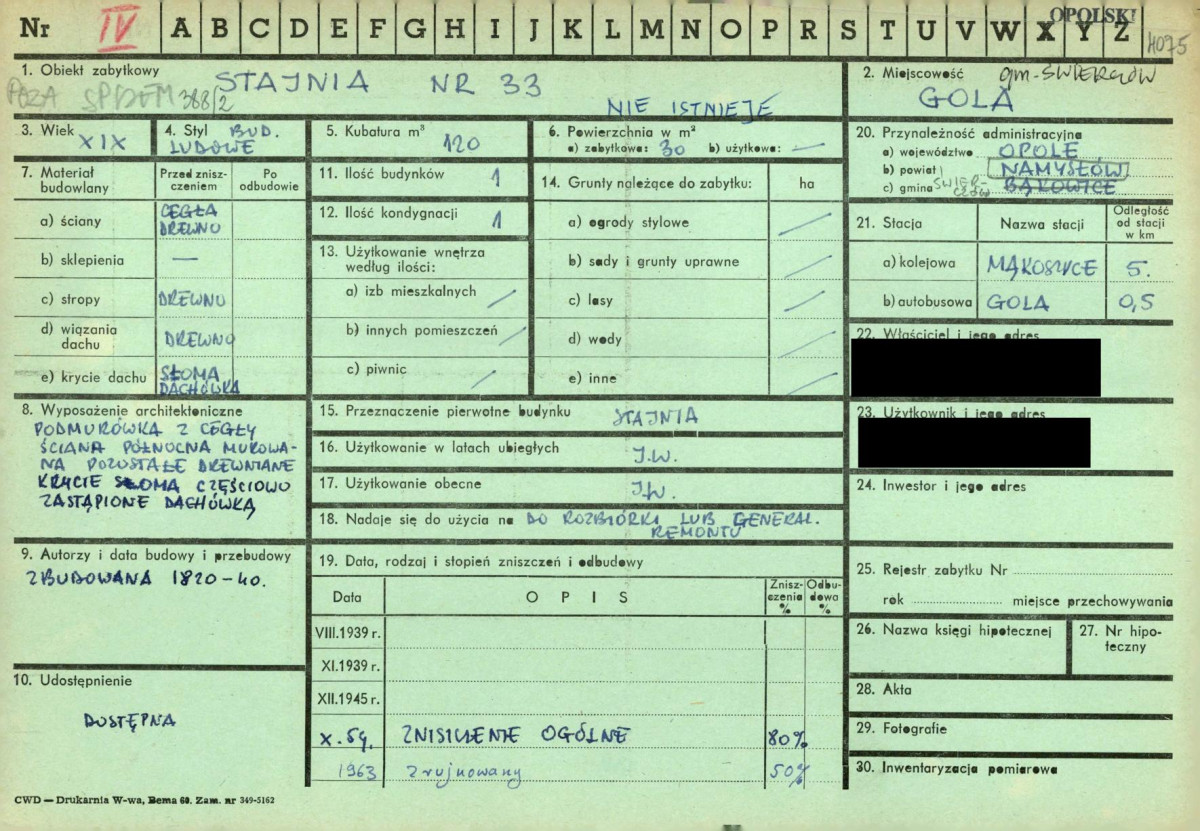 Nr IV A B C D E F G H I J K L M N O P R S T U V W X Y Z OPOLSKI 4075
1. Obiekt zabytkowy STAJNIA NR 33
POZA SPDEM 388/2 NIE ISTNIEJE
2. Miejscowość gm. ŚWIERCZÓW
GOLA
3. Wiek XIX
4. Styl BUD. LUDOWE
5. Kubatura m³ 120
6. Powierzchnia w m²
a) zabytkowa: 30 b) użytkowa: —
7. Materiał budowlany
Przed zniszczeniem
Po odbudowie
a) ściany CEGŁA DREWNO
b) sklepienia —
c) stropy DREWNO
d) wiązania dachu DREWNO
e) krycie dachu SŁOMA DACHÓWKA
8. Wyposażenie architektoniczne
PODMURÓWKA Z CEGŁY
ŚCIANA PÓŁNOCNA MUROWA-
NA POZOSTAŁE DREWNIANE
KRYCIE SŁOMA CZĘŚCIOWO
ZASTĄPIONE DACHÓWKĄ
9. Autorzy i data budowy i przebudowy
ZBUDOWANA 1820-40.
10. Udostępnienie
DOSTĘPNA
11. Ilość budynków 1
12. Ilość kondygnacji 1
13. Użytkowanie wnętrza według ilości:
a) izb mieszkalnych /
b) innych pomieszczeń /
c) piwnic /
14. Grunty należące do zabytku: ha
a) ogrody stylowe /
b) sady i grunty uprawne /
c) lasy /
d) wody /
e) inne /
15. Przeznaczenie pierwotne budynku STAJNIA
16. Użytkowanie w latach ubiegłych J.W.
17. Użytkowanie obecne J.W.
18. Nadaje się do użycia na DO ROZBIÓRKI LUB GENERAL.
REMONTU
19. Data, rodzaj i stopień zniszczeń i odbudowy
Data OPIS Zniszczenia % Odbudowa %
VIII.1939 r.
XI.1939 r.
XII.1945 r.
X.59. ZNISZCZENIE OGÓLNE 80%
1963 Zrujnowany 50%
20. Przynależność administracyjna
a) województwo OPOLE
b) powiat NAMYSŁÓW
c) gmina ŚWIER-CZÓW BĄKOWICE
21. Stacja Nazwa stacji Odległość od stacji w km
a) kolejowa MĄKOSZYCE 5.
b) autobusowa GOLA 0,5
22. Właściciel i jego adres
23. Użytkownik i jego adres
24. Inwestor i jego adres
25. Rejestr zabytku Nr
rok miejsce przechowywania
26. Nazwa księgi hipotecznej
27. Nr hipo-
teczny
28. Akta
29. Fotografie
30. Inwentaryzacja pomiarowa
CWD — Drukarnia W-wa, Bema 60. Zam. nr 349-5162